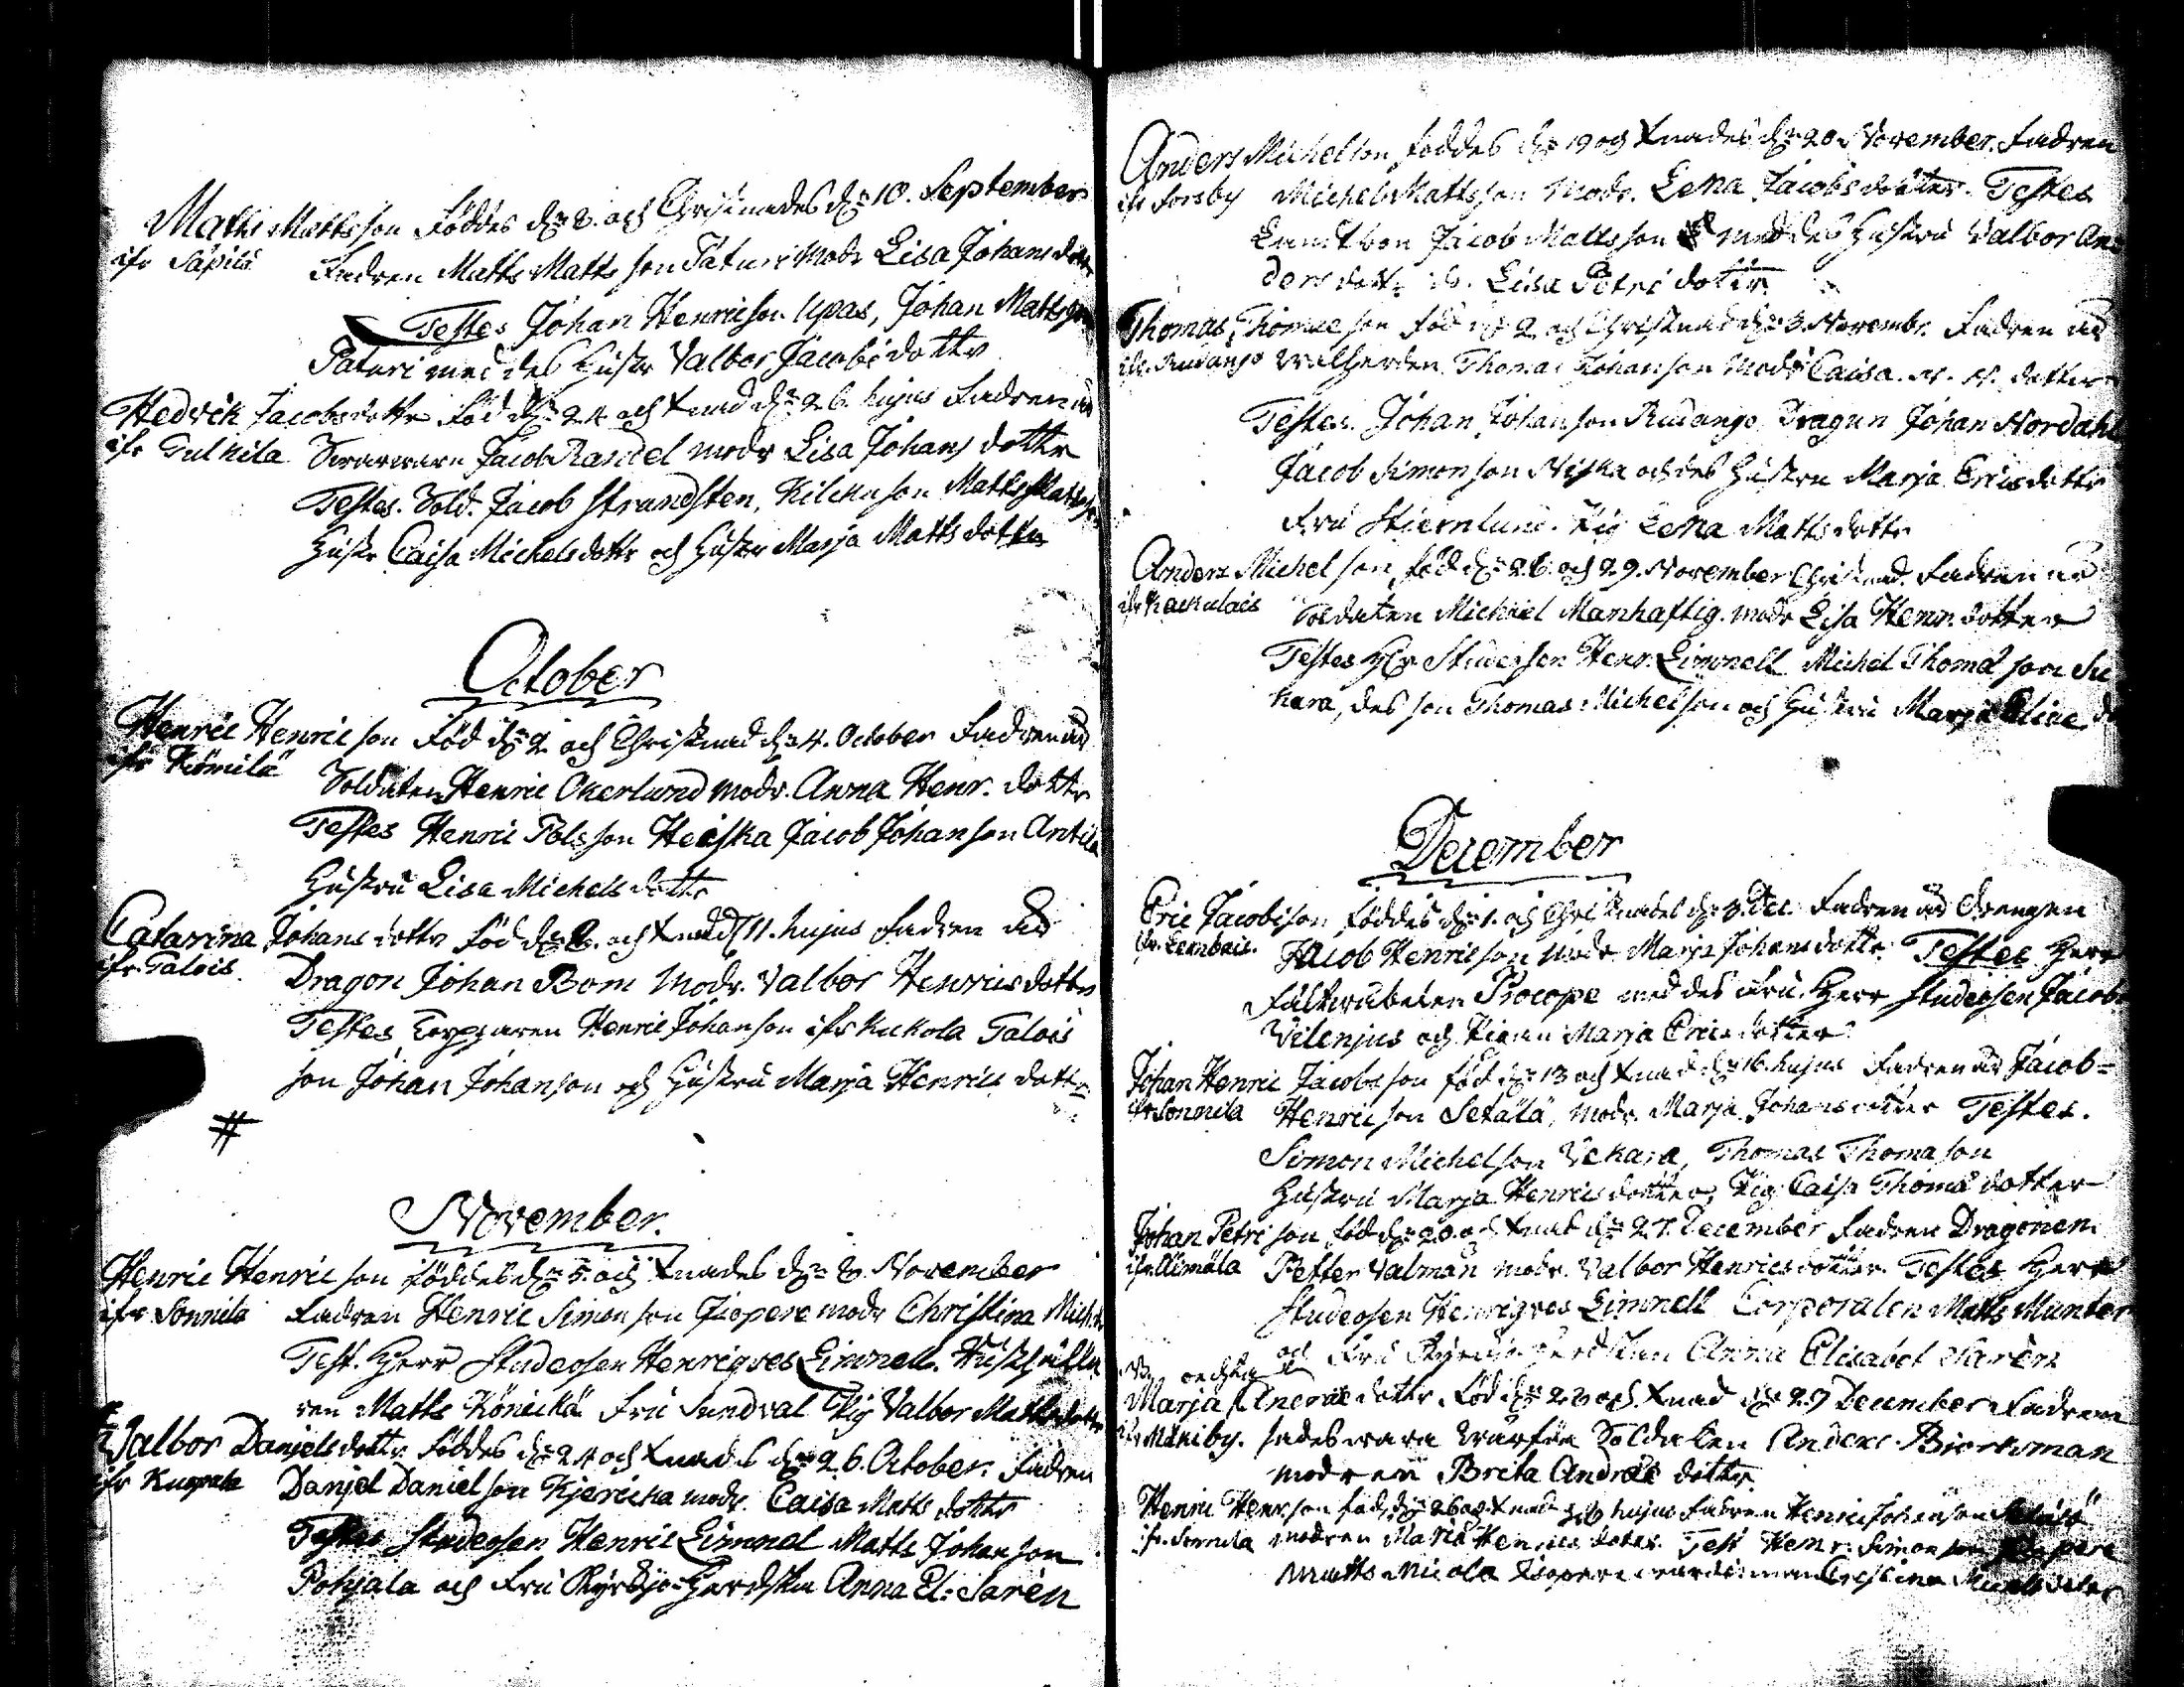 Matts Mattsson föddes d: 8. och Christnades d: 10. September
ifr Sapilä Fadren Matts Mattsson Paturi modr Lisa Johans dottr
Testes Johan Henricson Upas, Johan Mattsson
Paturi med des Hustr Valbor Jacobsdottr
Hedvik Jacobsdottr född d: 24 och Xnad d: 26. hujus Fadren är
ifr Sulkila Svarvaren Jacob Randel modr Lisa Johans dottr
Testes. Sold. Jacob Strandsten, Kilckuson Matts Mattsson
Hustr Caisa Michelsdottr och Hustr Marja Matts dotter
October
Henric Henricson född d: 2 och Christnad d: 4. October Fadren är
ifr Kömilä Soldaten Henric Okerlund modr. Anna Henr. dottr
Testes Henric Polsson Heiska Jacob Johanson Antila
Hustru Lisa Michelsdottr
Catarina Johans dottr född d: 8. och Xnad d 11. hujus Fadren är
ifr Talois. Dragon Johan Bom Modr. Valbor Henricsdotter
Testes Torpparen Henric Johanson ifr Kuckola Talois
son Johan Johanson och Hustru Marja Henrics dottr
#
November.
Henric Henricson föddes d: 5. och Xnades d: 8. November
ifr Sonnila Fadren Henric Simonson Jiopere modr Christina Mich
Test. Herr Studiosen Henriqves Limnell.
ren Matts Könickä Fru Sundval Pig Valbor Mattsdotter
# Valbor Danjelsdottr föddes d: 24 och Xnades d: 26. October. Fadren
ifr Danjel Danielson Kjercika modr. Caisa Matts dottr
Testes Studiosen Henric Limnel Matts Johanson
Pohjala och Fru Kyrckjo-Herdskan Anna El: Saren
Anders Michelson föddes d: 19 och Xnades d: 20. November. Fadren
ifr Forsby Michel Mattsson Modr. Lena Jacobsdotter. Testes
Landtbon Jacob Mattsson med des Hustru Valbor An
ders dottr Lisa Petri dotter
Thomas Thomæson född d: 2 och Christnad d: 3. Novembr. Fadren är
ifr. Rudango Thomas Johanson Modr Caisa. N. N. dotter
Testes. Johan Johanson Rudango Dragun Johan Nordahl
Jacob Simonson Niska och des Hustru Marja Ericsdottr
Fru Stiernlund. Pig Lena Mattsdottr
Anders Michelson född d: 26. och 29. November Christnad. Fadren är
ifr Soldaten Michael Manhaftig. modr Lisa Henr. dotter
Testes Hr Studiosen Henr. Limnell Michel Thomæson Su
kara, des son Thomas Michelson och Hustru Marja
December
Eric Jacobson föddes d: 1. och Christnades d: 3. Dec. Fadren är Drengen
ifr. Lembois. Jacob Henricson modr Marja Johansdottr: Testes Herr
Fältwäbelen Procope med des Fru. Herr Studiosen Jacob
Vilenjus och Pigan Marja Ericsdotter
Johan Henric Jacobsson född d: 13 och Xnad d: 16. hujus Fadren är Jacob=
ifr Sonnila Henricson Setälä, modr. Marja Johansdotter Testes.
Simon Michelson Vekara, Thomas Thomason
Hustru Marja Henricsdotter, Pig Caisa Thomædotter
Johan Petrison född d: 20. och Xnad d: 27. December Fadren Dragonen
ifr Alimäla Petter Valman modr. Valbor Henricsdotter. Testes Herr
Studiosen Henriqves Limnell Corporalen Matts Munter
och Fru Kyrckjoherdskan Anna Elisabet Saren
Marja Andersdottr. född d: 28 och Xnad d: 29 December Fadren
ifr Mäniby. sades wara Soldaten Anders Biorkman
modren Brita Andræ dotter
Henric Henr.son född d: 26 och Xnad hujus Fadren Henric Johanson
ifr. Sonnila modren Maria Henrics dotter. Test Henr. Simonson Jiopere
Matts Nicola Jiopere